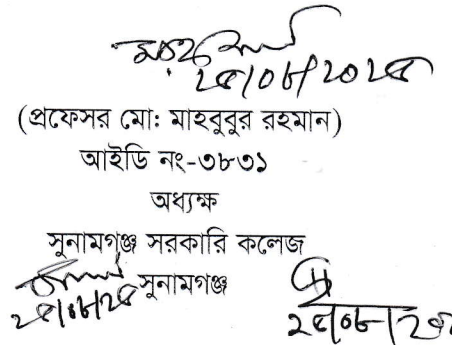 ২৫/০৮/২০২৫
(প্রফেসর মো: মাহবুবুর রহমান)
আইডি নং-৩৮৩১
অধ্যক্ষ
সুনামগঞ্জ সরকারি কলেজ
সুনামগঞ্জ
২৫/০৮/২৫
২৫/০৮/২৫